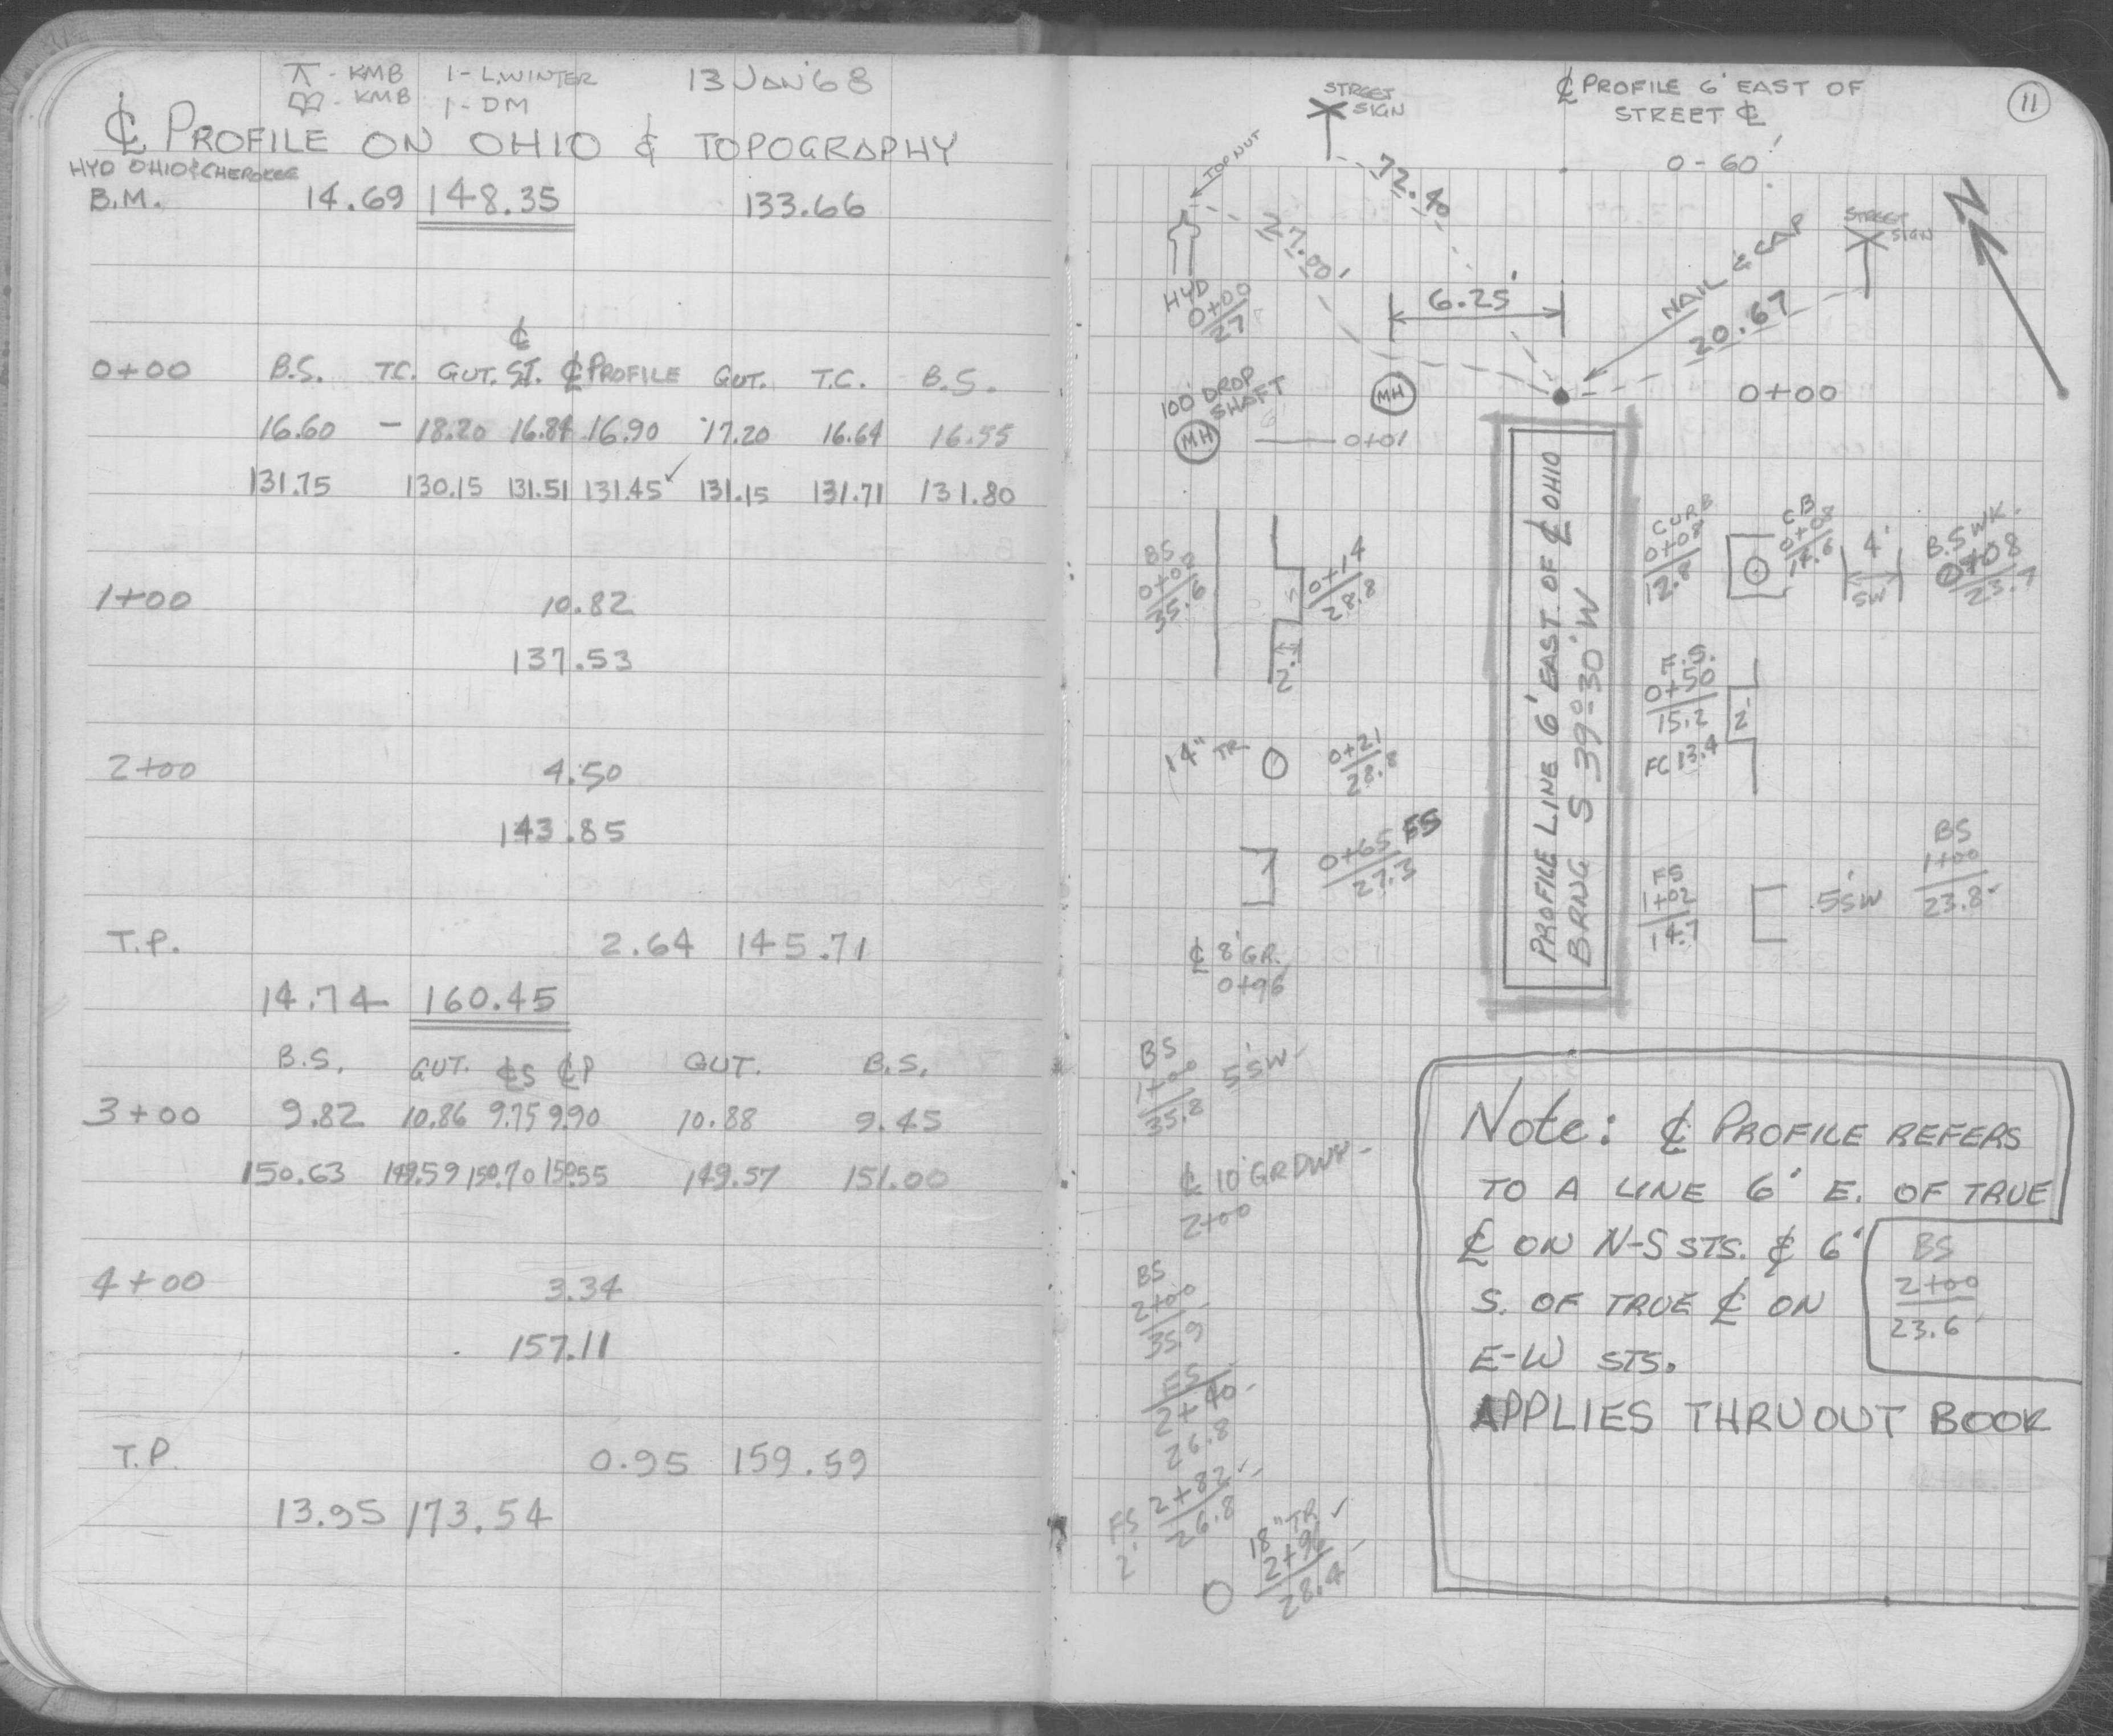 ⊼ - KMB 1 - L.WINTER 13 JAN '68
- KMB 1 - DM
℄ PROFILE ON OHIO & TOPOGRAPHY
HYD OHIO & CHEROKEE
B.M. 14.69 148.35 133.66
℄
0+00 B.S. TC. GUT. ST. ℄ PROFILE GUT. T.C. B.S.
16.60 - 18.20 16.84 16.90 17.20 16.64 16.55
131.75 130.15 131.51 131.45 ✓ 131.15 131.71 131.80
1+00 10.82
137.53
2+00 4.50
143.85
T.P. 2.64 145.71
14.74 160.45
B.S. GUT. ℄S ℄P GUT. B.S.
3+00 9.82 10.86 9.75 9.90 10.88 9.45
150.63 149.59 150.70 150.55 149.57 151.00
4+00 3.34
157.11
T.P. 0.95 159.59
13.95 173.54
11
℄ PROFILE 6' EAST OF
STREET ℄
0-60'
STREET
SIGN
TOP NUT
72.40
27.00'
HYD
0+00
27
6.25'
NAIL & CAP
20.67
STREET
SIGN
N
0+00
100' DROP
SHAFT
MH
MH
0+01
PROFILE LINE 6' EAST OF ℄ OHIO
BRNG S 39°-30' W
BS
35.6
0+14
28.8
2'
CURB
0+08
12.8
CB
0+08
14.6
4'
SW
B.SWK.
0+08
23.7
F.S.
0+50
15.2
FC 13.4
2'
14" TR
0+21
28.8
0+65 FS
27.3
FS
1+02
14.7
5' SW
BS
1+00
23.8
℄ 8' GR.
0+96
BS
1+00
35.8
5' SW
℄ 10' GR DWY
2+00
BS
2+00
35.9
FS
2+40
26.8
FS
2'
2+82
26.8
18" TR ✓
2+96
28.4
Note: ℄ PROFILE REFERS
TO A LINE 6' E. OF TRUE
℄ ON N-S STS. & 6'
S. OF TRUE ℄ ON
E-W STS.
APPLIES THRUOUT BOOK
BS
2+00
23.6